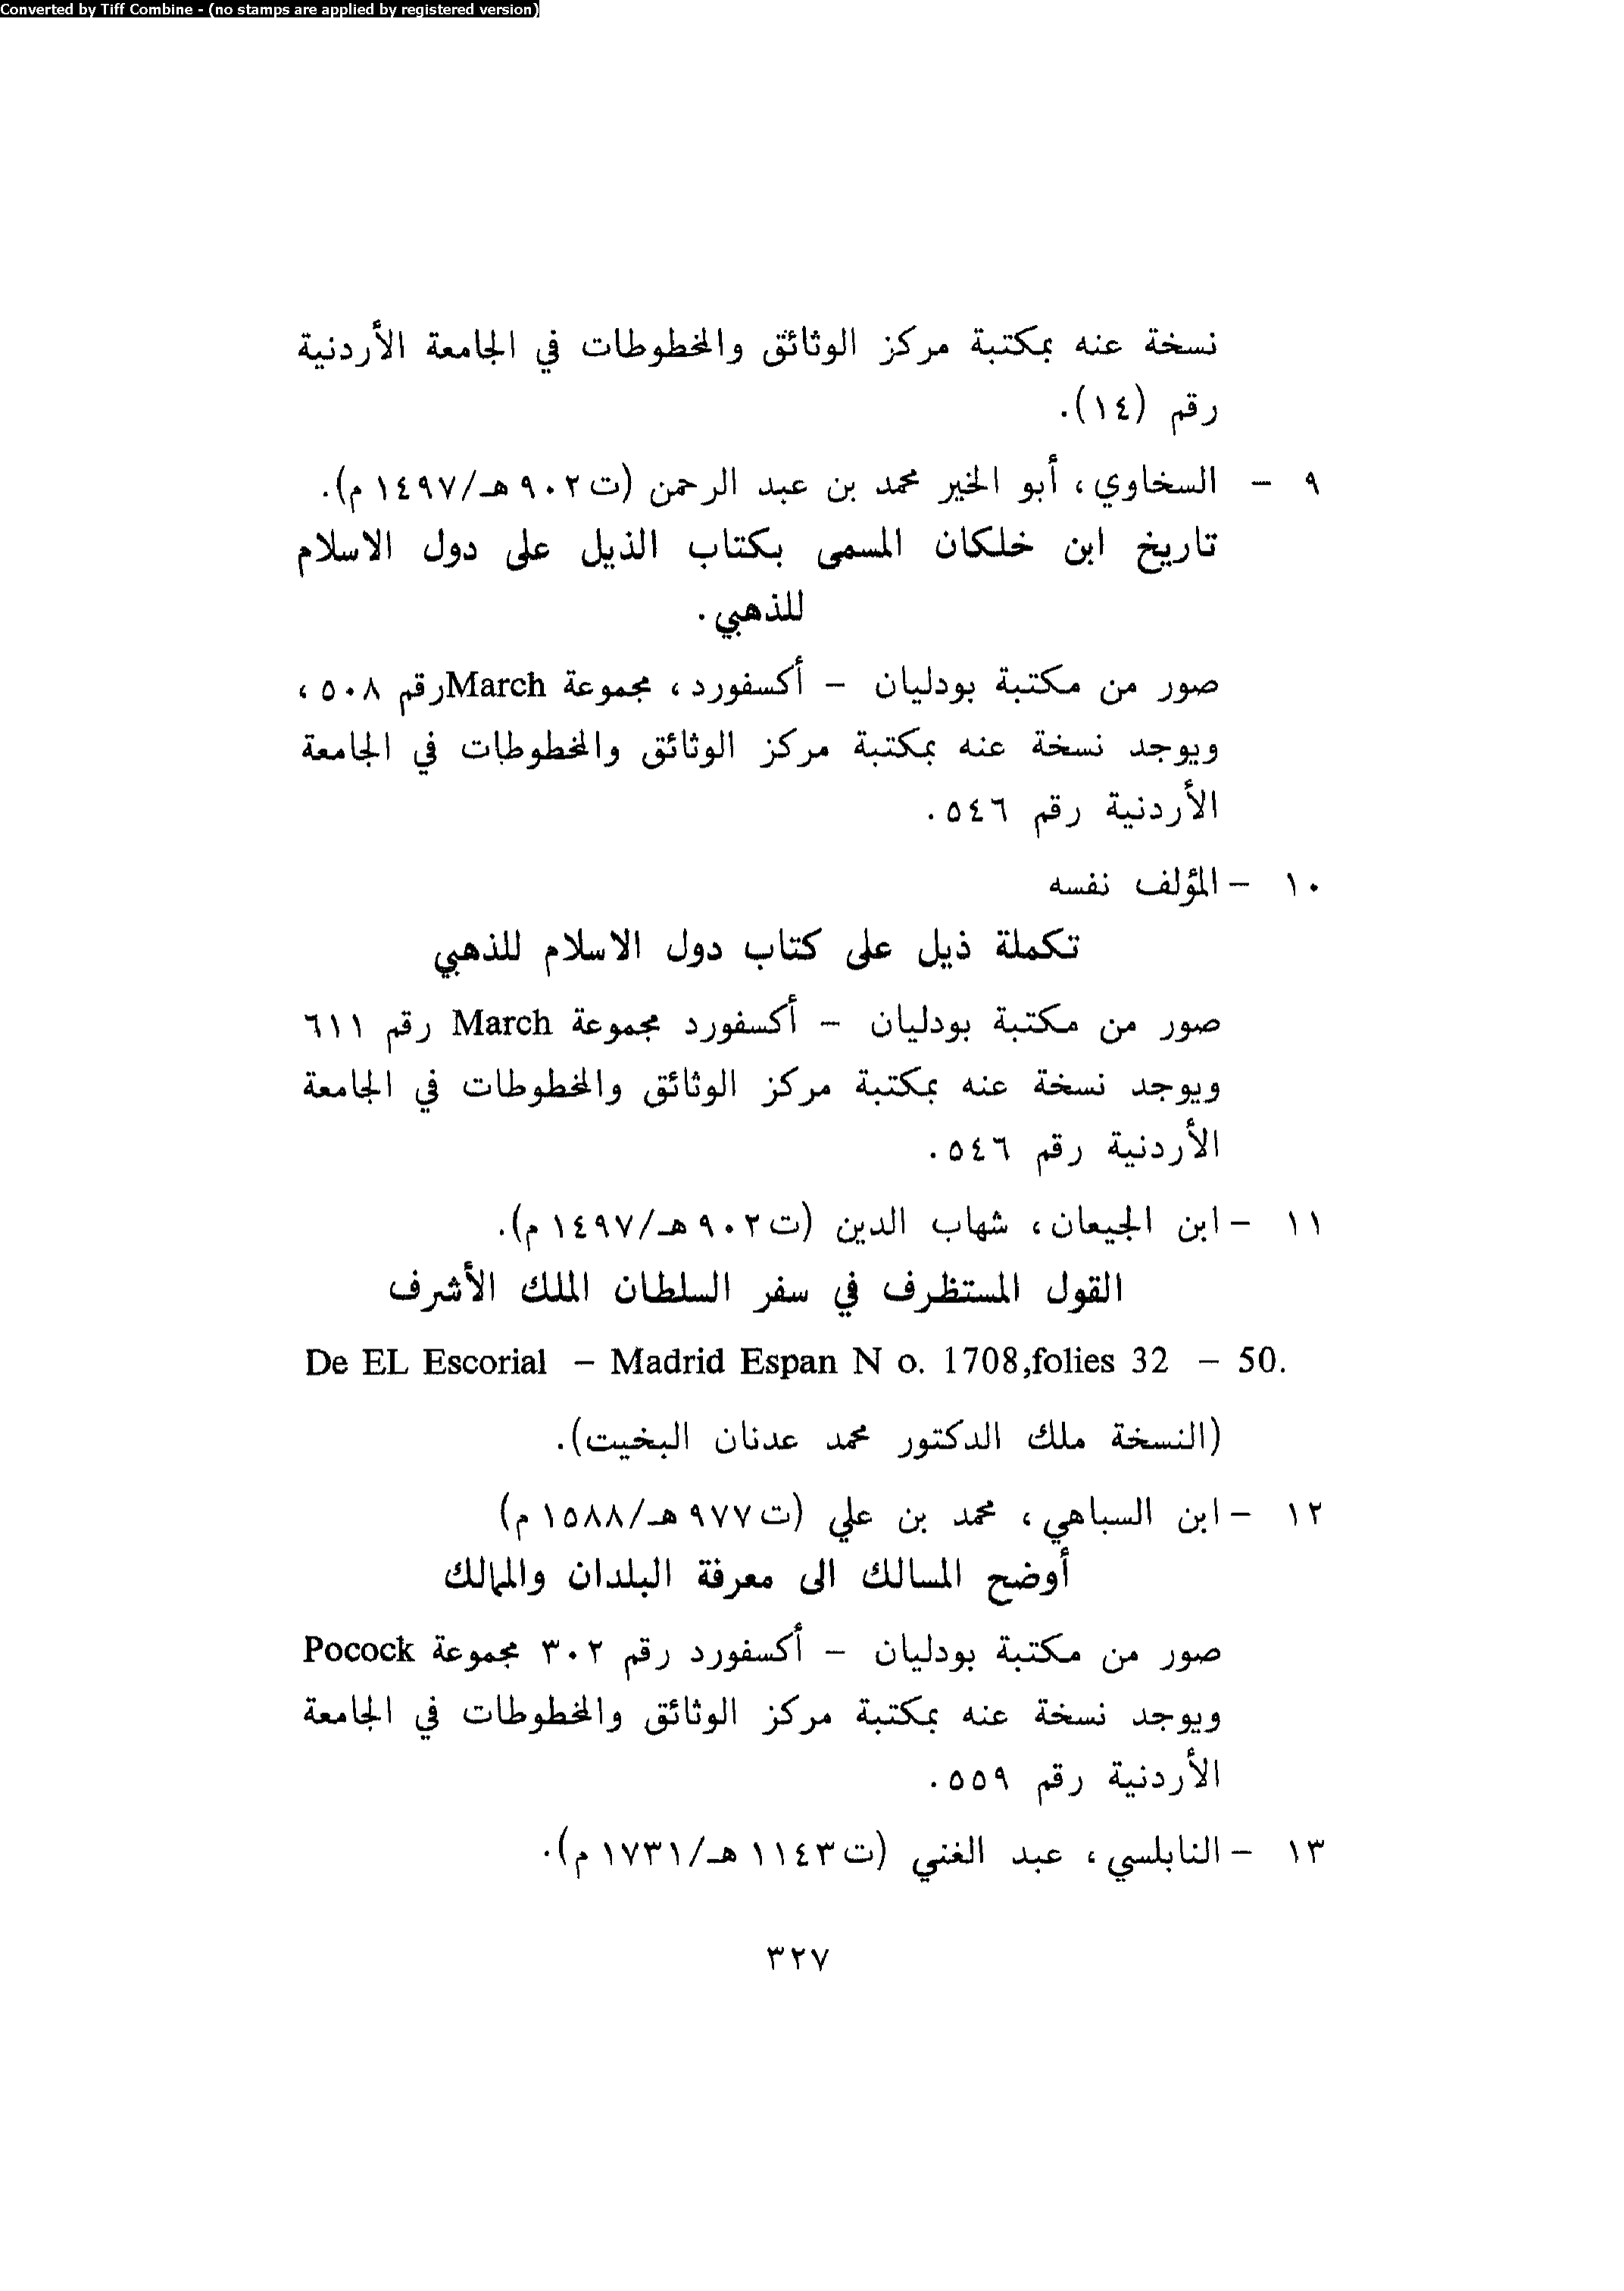 Converted by Tiff Combine - (no stamps are applied by registered version)
نسخة عنه بمكتبة مركز الوثائق والمخطوطات في الجامعة الأردنية
رقم (١٤).
٩ - السخاوي، أبو الخير محمد بن عبد الرحمن (ت٩٠٢هـ/١٤٩٧م).
تاريخ ابن خلكان المسمى بكتاب الذيل على دول الاسلام
للذهبي.
صور من مكتبة بودليان - أكسفورد، مجموعة March رقم ٥٠٨،
ويوجد نسخة عنه بمكتبة مركز الوثائق والمخطوطات في الجامعة
الأردنية رقم ٥٤٦.
١٠ - المؤلف نفسه
تكملة ذيل على كتاب دول الاسلام للذهبي
صور من مكتبة بودليان - أكسفورد مجموعة March رقم ٦١١
ويوجد نسخة عنه بمكتبة مركز الوثائق والمخطوطات في الجامعة
الأردنية رقم ٥٤٦.
١١ - ابن الجيعان، شهاب الدين (ت٩٠٢هـ/١٤٩٧م).
القول المستظرف في سفر السلطان الملك الأشرف
De EL Escorial - Madrid Espan N o. 1708,folies 32 - 50.
(النسخة ملك الدكتور محمد عدنان البخيت).
١٢ - ابن السباهي، محمد بن علي (ت٩٧٧هـ/١٥٨٨م)
أوضح المسالك الى معرفة البلدان والممالك
صور من مكتبة بودليان - أكسفورد رقم ٣٠٢ مجموعة Pocock
ويوجد نسخة عنه بمكتبة مركز الوثائق والمخطوطات في الجامعة
الأردنية رقم ٥٥٩.
١٣ - النابلسي، عبد الغني (ت١١٤٣هـ/١٧٣١م).
٣٢٧